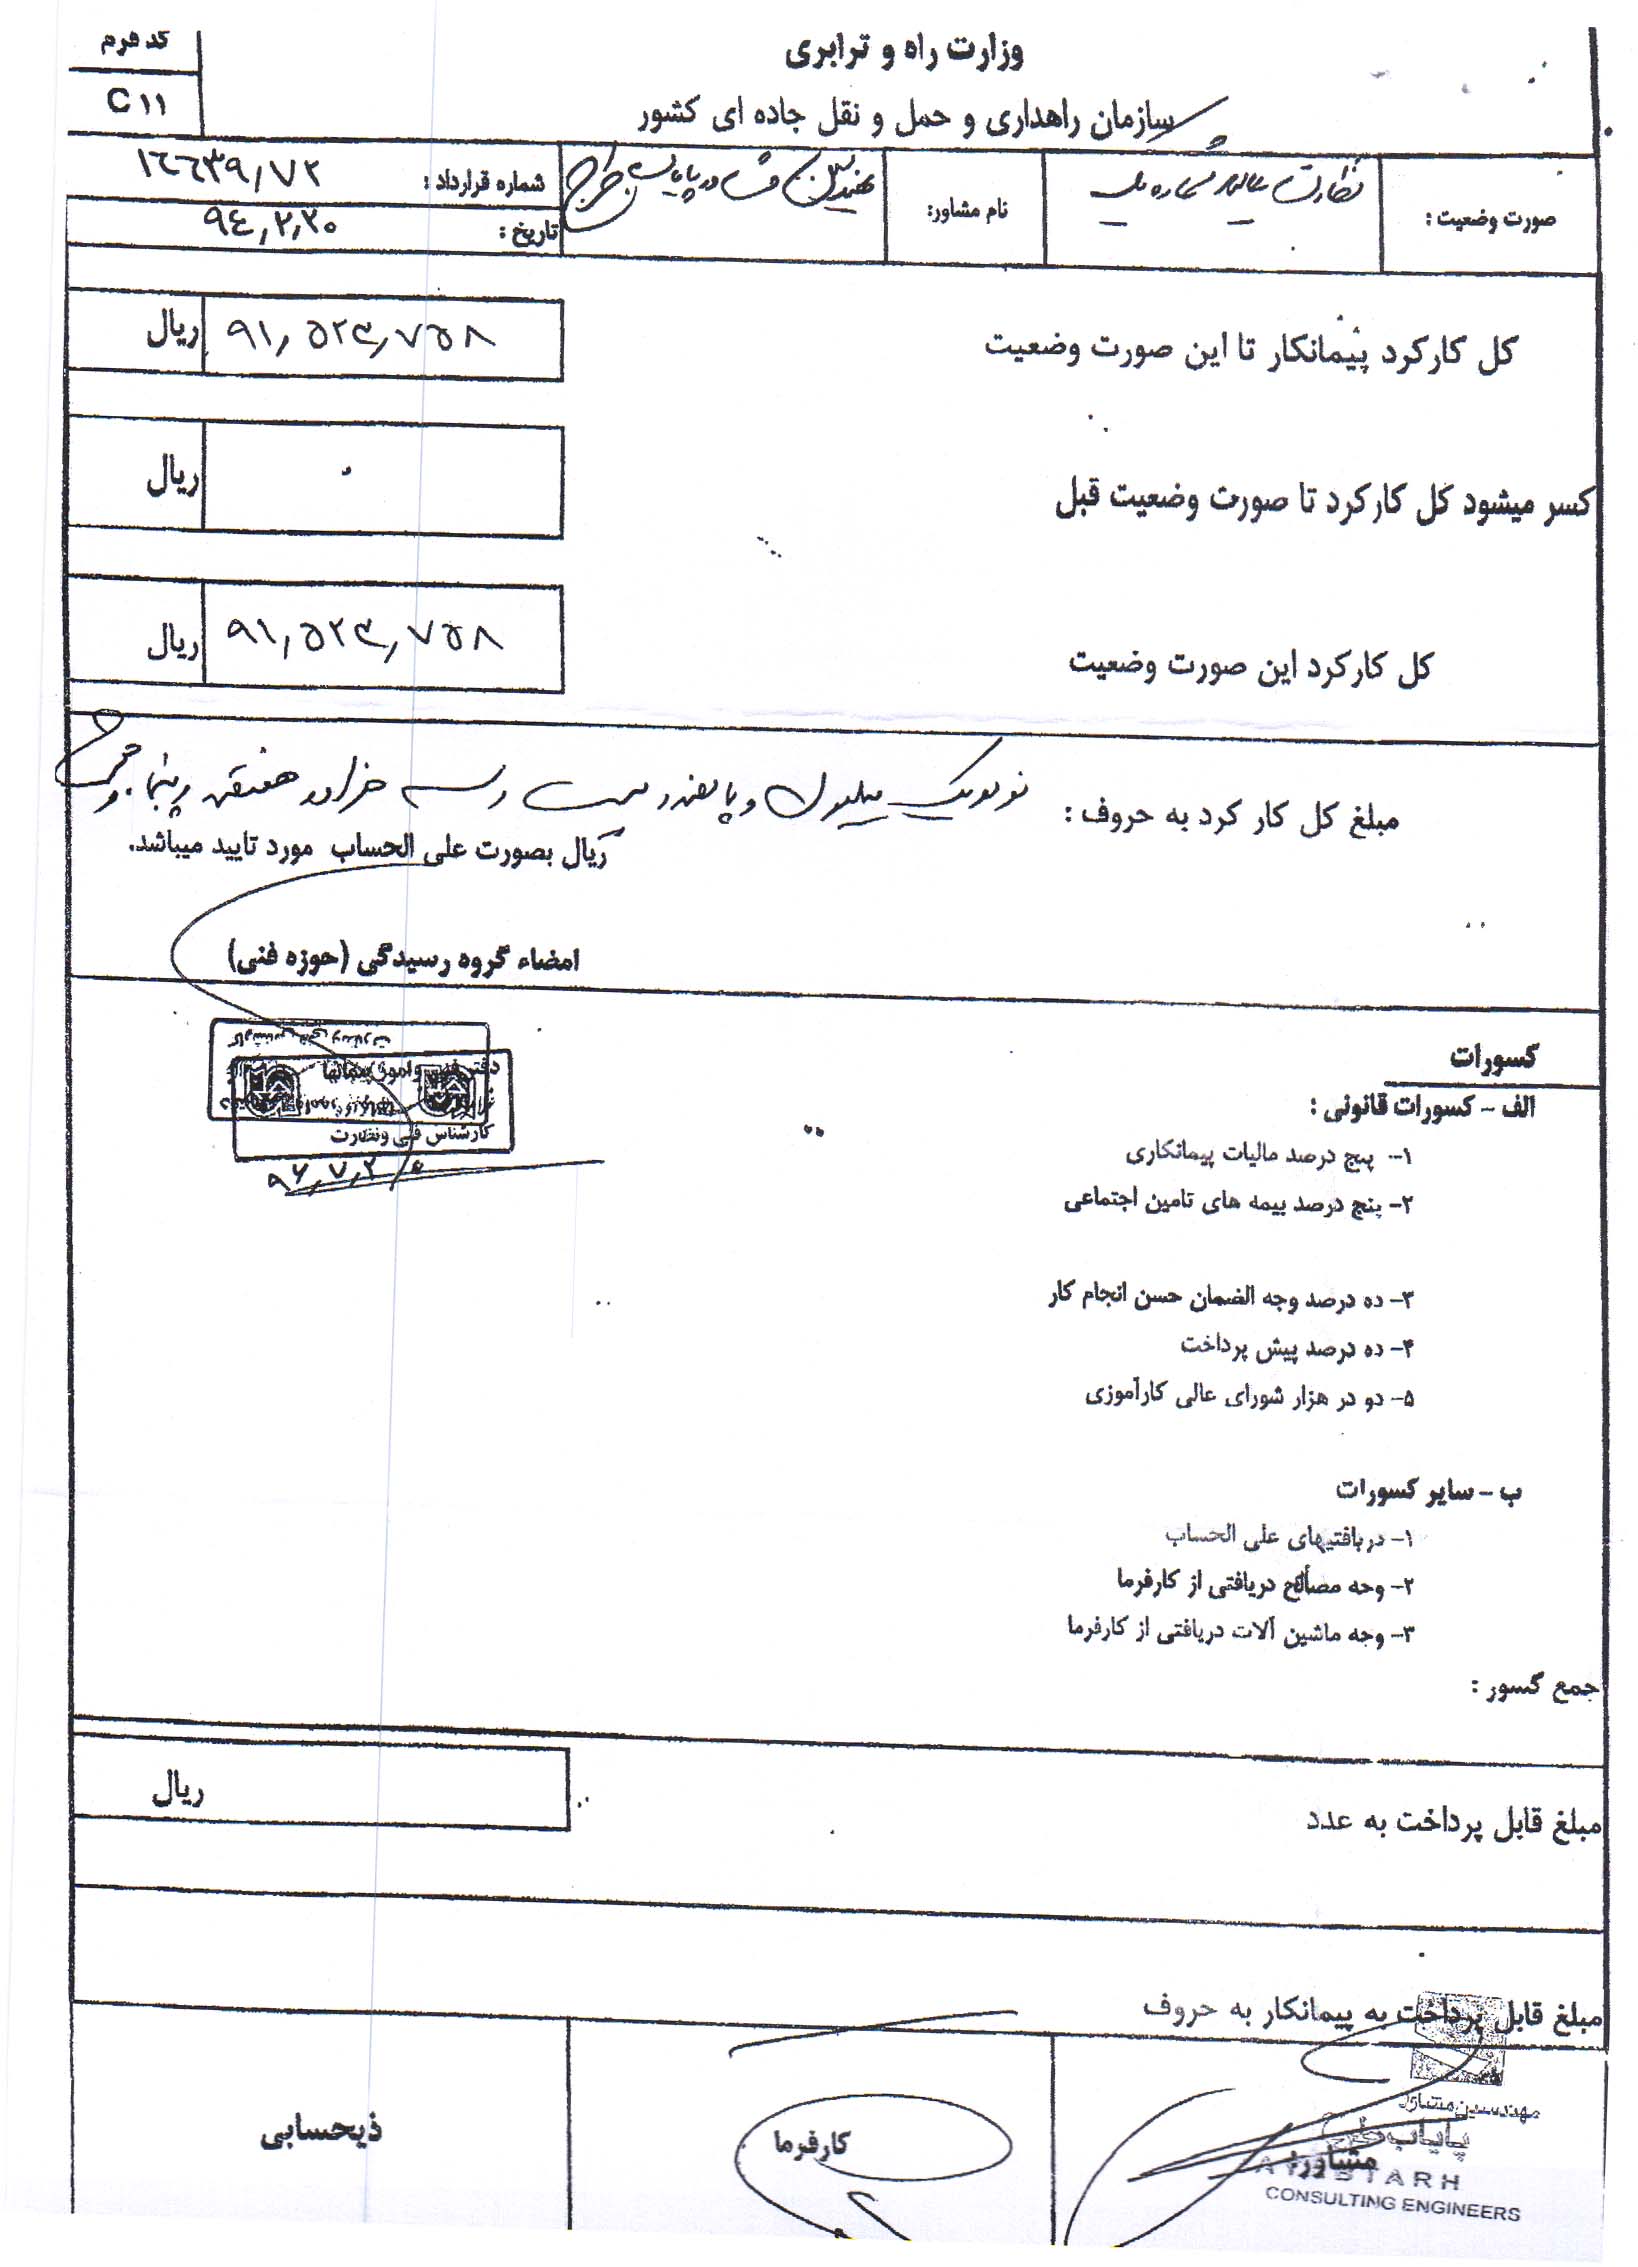 وزارت راه و ترابری
سازمان راهداری و حمل و نقل جاده ای کشور
کد فرم
C ۱۱
صورت وضعیت :
نظارت عالیه شماره یک
نام مشاور:
مهندسین مشاور پایاب طرح
شماره قرارداد :
۱۶۶۳۹,۷۲
تاریخ :
۹٤,۲,۳۰
کل کارکرد پیمانکار تا این صورت وضعیت
۹۱,۵۲۳,۷۵۸ ریال
کسر میشود کل کارکرد تا صورت وضعیت قبل
۰ ریال
کل کارکرد این صورت وضعیت
۹۱,۵۲۳,۷۵۸ ریال
مبلغ کل کار کرد به حروف : نود و یک میلیون و پانصد و بیست و سه هزار و هفتصد و پنجاه و
ریال بصورت علی الحساب مورد تایید میباشد.
امضاء گروه رسیدگی (حوزه فنی)
دفتر فنی و امور پیمانها
کارشناس فنی ونظارت
کسورات
الف - کسورات قانونی :
۱- پنج درصد مالیات پیمانکاری
۲- پنج درصد بیمه های تامین اجتماعی
۳- ده درصد وجه الضمان حسن انجام کار
۴- ده درصد پیش پرداخت
۵- دو در هزار شورای عالی کارآموزی
ب - سایر کسورات
۱- دریافتیهای علی الحساب
۲- وجه مصالح دریافتی از کارفرما
۳- وجه ماشین آلات دریافتی از کارفرما
جمع کسور :
مبلغ قابل پرداخت به عدد
ریال
مبلغ قابل پرداخت به پیمانکار به حروف
مهندسین مشاور
پایاب طرح
مشاور:
CONSULTING ENGINEERS
کارفرما
ذیحسابی